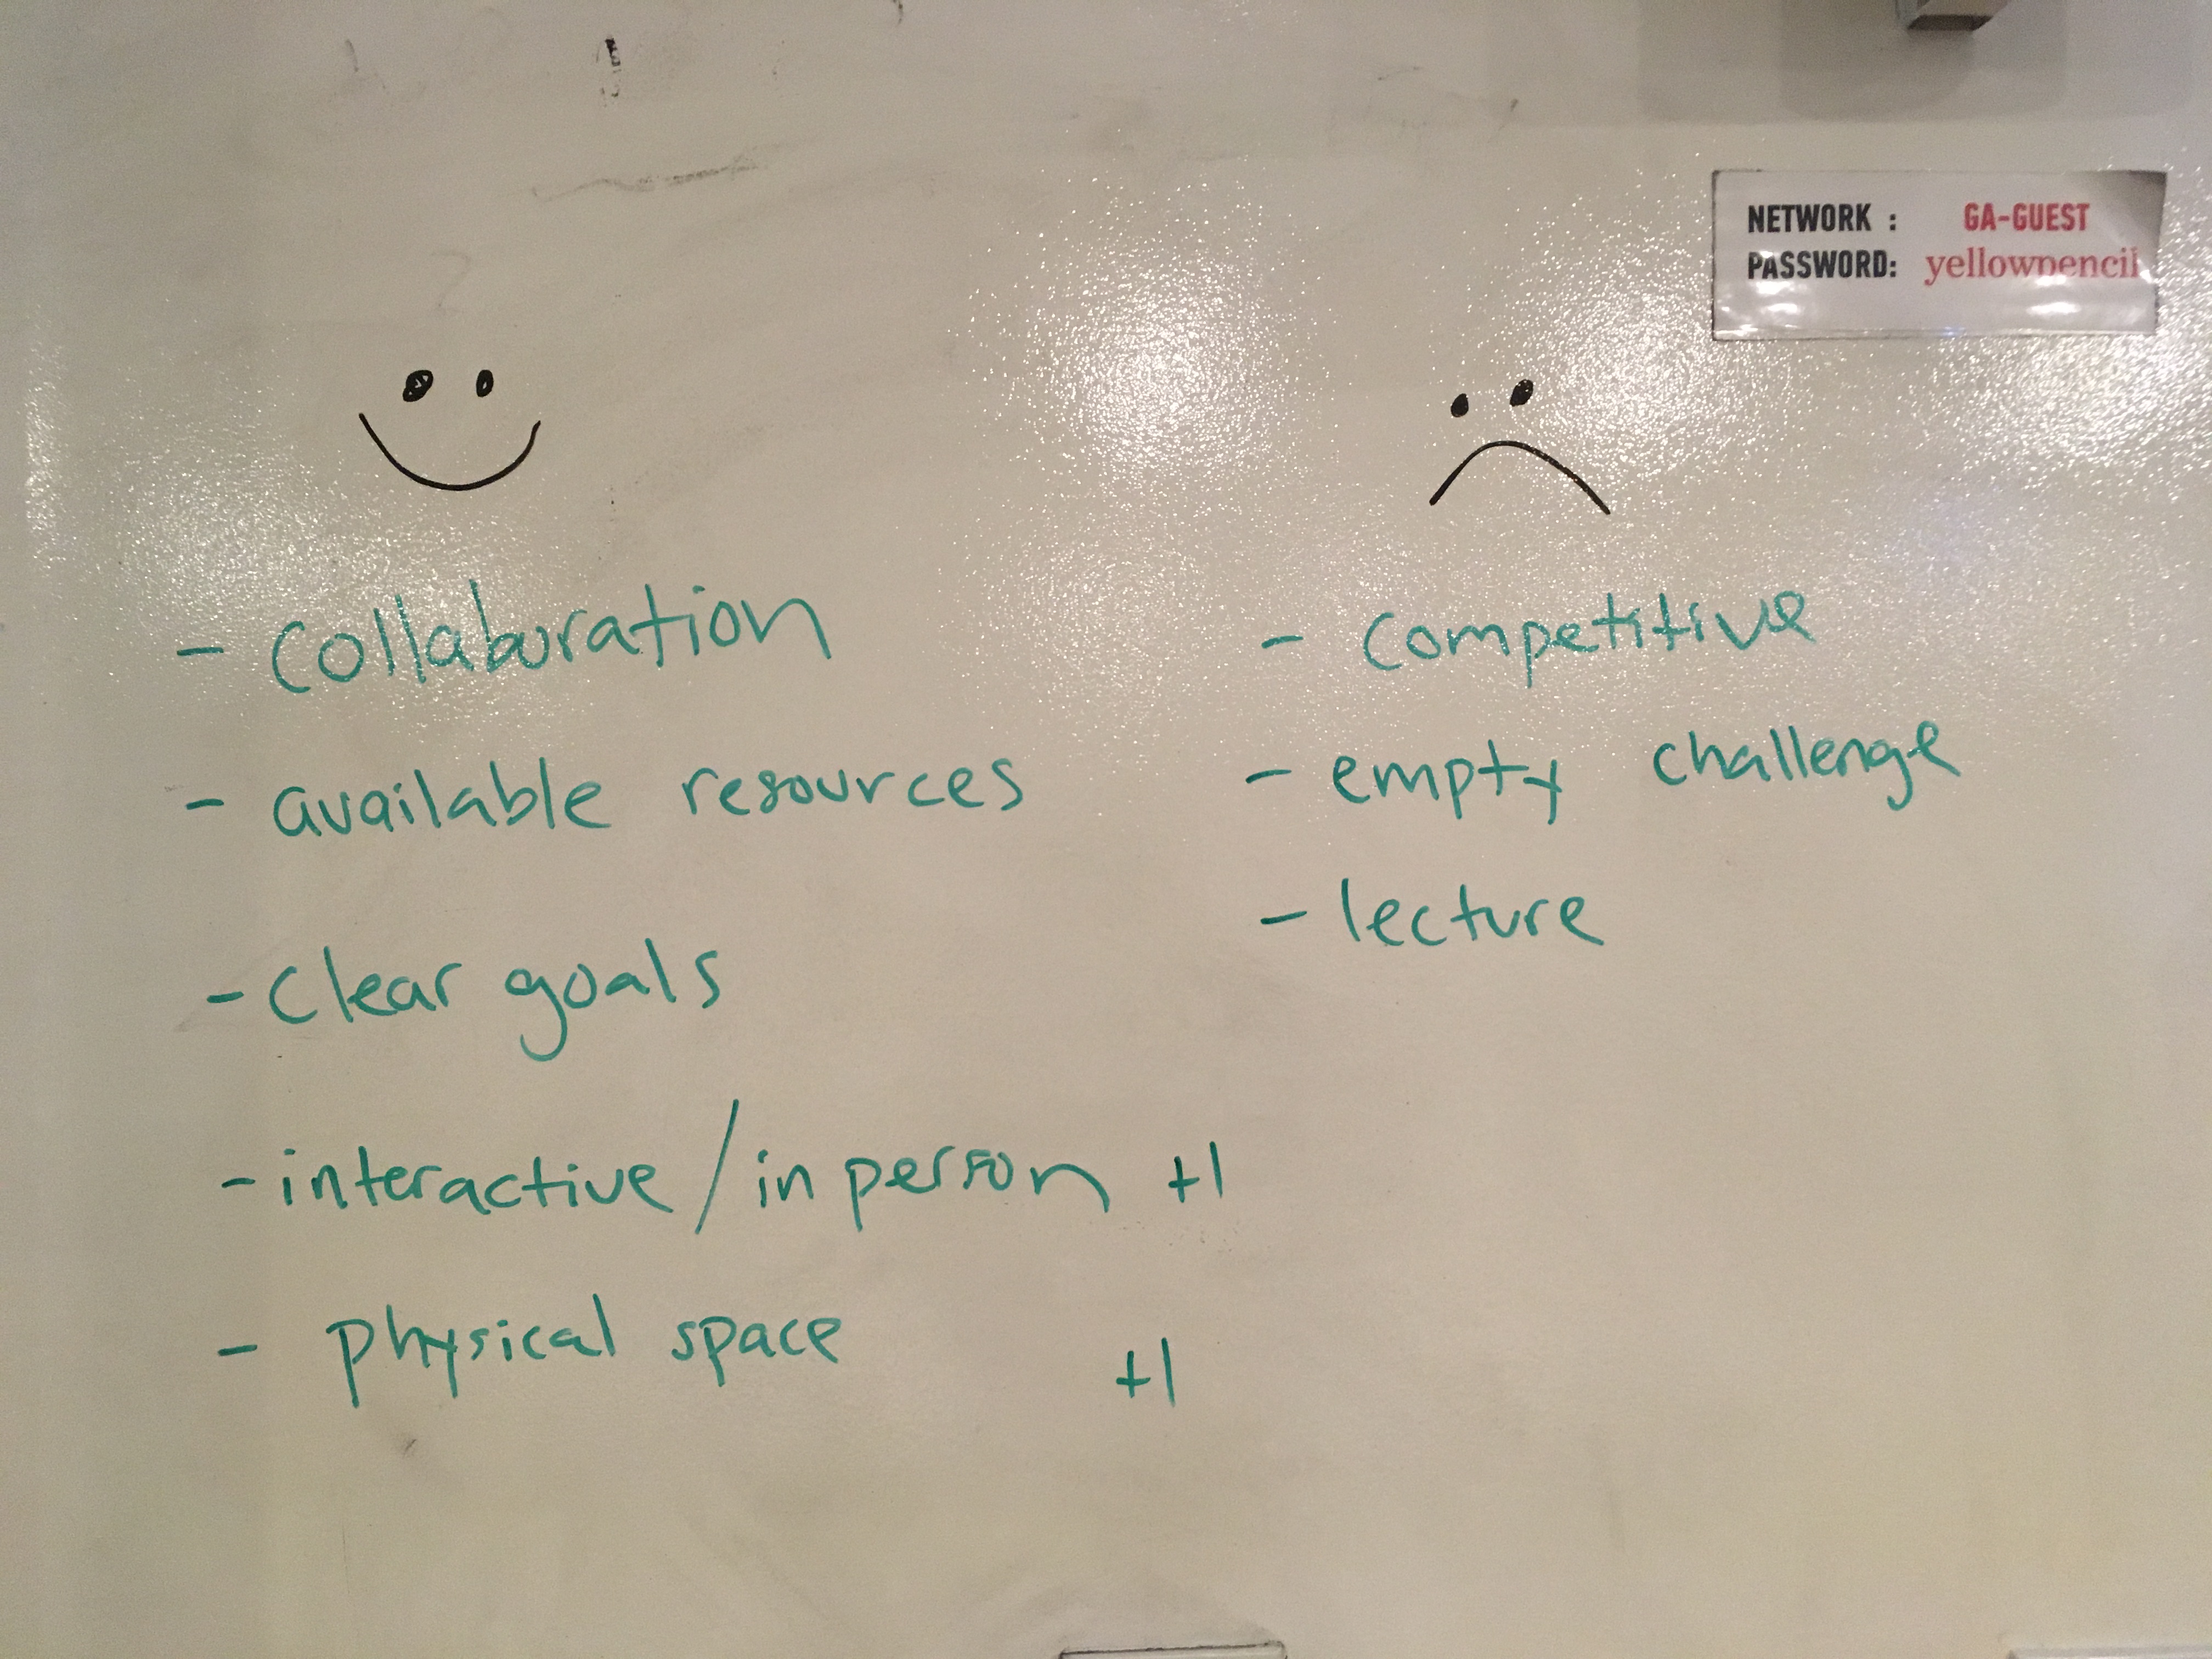 NETWORK : GA-GUEST
PASSWORD: yellowpencil
- collaboration
- available resources
- clear goals
- interactive / in person +1
- physical space +1
- competitive
- empty challenge
- lecture